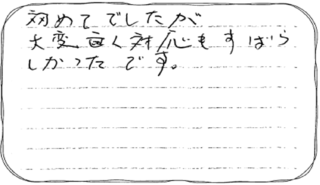 初めてでしたが
大変良く対応もすばら
しかったです。